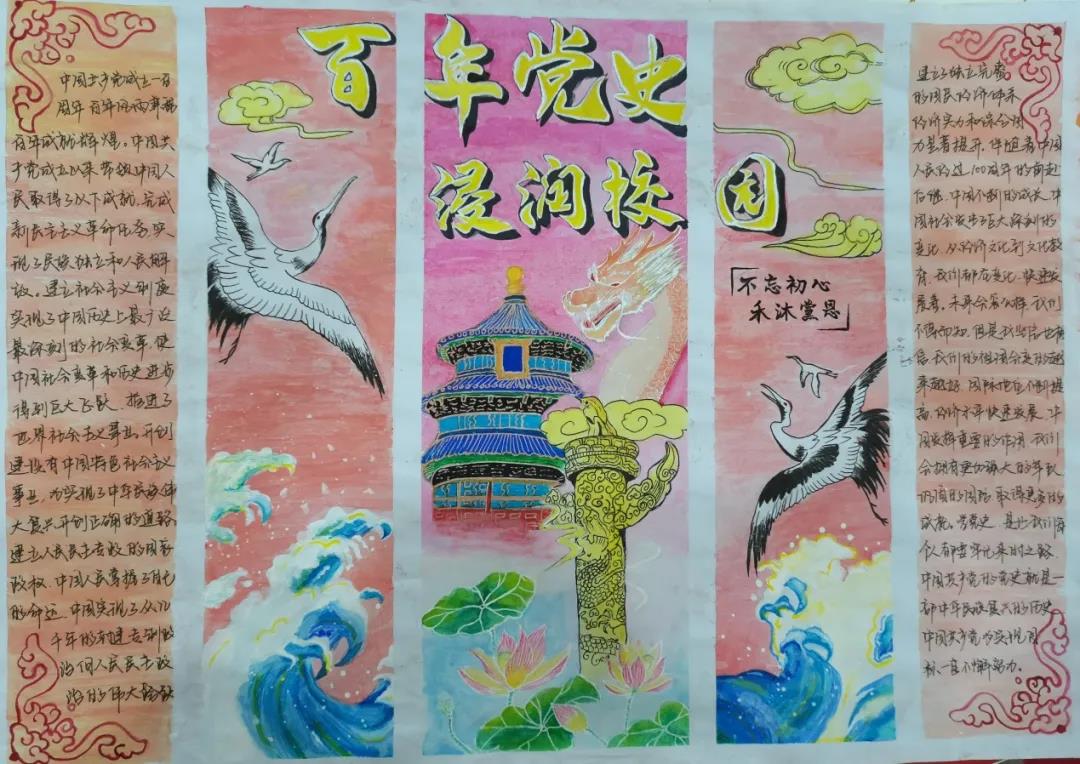 百年党史
浸润校园
「不忘初心
永沐黨恩」
中国共产党成立一百
周年 百年风雨兼程
百年成就辉煌。中国共
产党成立以来带领中国人
民取得了以下成就.完成
新民主主义革命任务,实
现了民族独立和人民解
放。建立社会主义制度
实现了中国历史上最广泛
最深刻的社会变革.使
中国社会变革和历史进步
得到巨大飞跃、推进了
世界社会主义事业.开创
建设有中国特色社会主义
事业.为实现了中华民族伟
大复兴开创正确的道路
建立人民民主专政的国家
政权.中国人民掌握了自己
的命运.中国实现了从几
千年的封建专制政
治向人民民主政
治的伟大
建立了独立完整
的国民经济体系
经济实力和综合国
力显著提升.伴随着中国
人民的过100周年的
中国不断的成长.中
国社会发生了巨大深刻的
变化.从经济文化到文化教
育.我们都在变化.快速发
展着.未来会怎么样.我们
不得而知.但是我坚信也
信我们的祖国会变的越
来越好.国际地位不断提
高.经济水平快速发展.中
国发挥重要的作用.我们
会拥有更加强大的军队
的国防.取得更多的
成就.学党史.是让我们每
个人都要牢记来时之路.
中国共产党的党史就是一
部中华民族复兴的历史
中国共产党为实现目
标一直不懈努力.